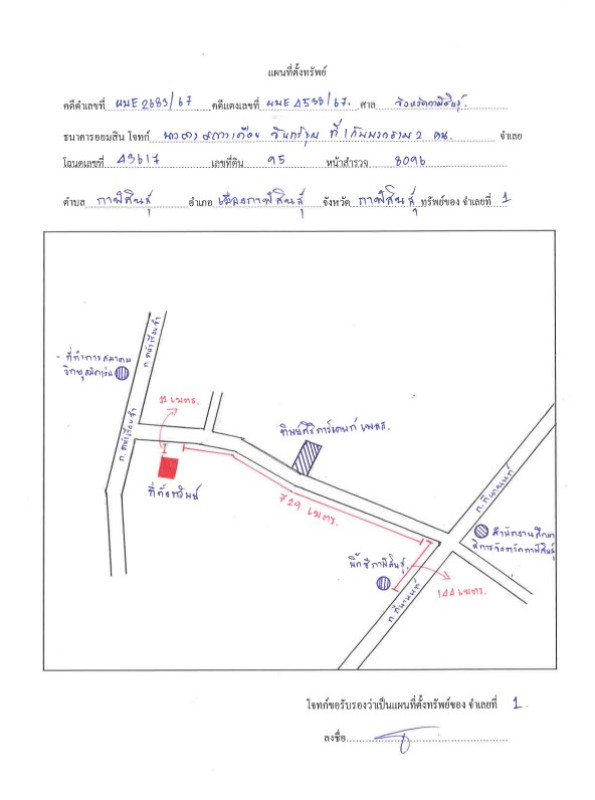 แผนที่ตั้งทรัพย์
คดีดำเลขที่ ผบE2683/67 คดีแดงเลขที่ ผบE4533/67. ศาล จังหวัดกาฬสินธุ์.
ธนาคารออมสิน โจทก์ ที่ 1 กับพวกรวม 2 คน. จำเลย
โฉนดเลขที่ 43617 เลขที่ดิน 95 หน้าสำรวจ 8096
ตำบล กาฬสินธุ์ อำเภอ เมืองกาฬสินธุ์ จังหวัด กาฬสินธุ์ ทรัพย์ของ จำเลยที่ 1
- ที่ทำการสมาคม
วิทยุสมัครเล่น
21 เมตร.
ที่ตั้งทรัพย์
729 เมตร.
ถ.ถีนานนท์
สำนักงานศึกษา
ธิการจังหวัดกาฬสินธุ์
บิ๊กซีกาฬสินธุ์.
144 เมตร.
ถ.ถีนานนท์
โจทก์ขอรับรองว่าเป็นแผนที่ตั้งทรัพย์ของ จำเลยที่ 1.
ลงชื่อ